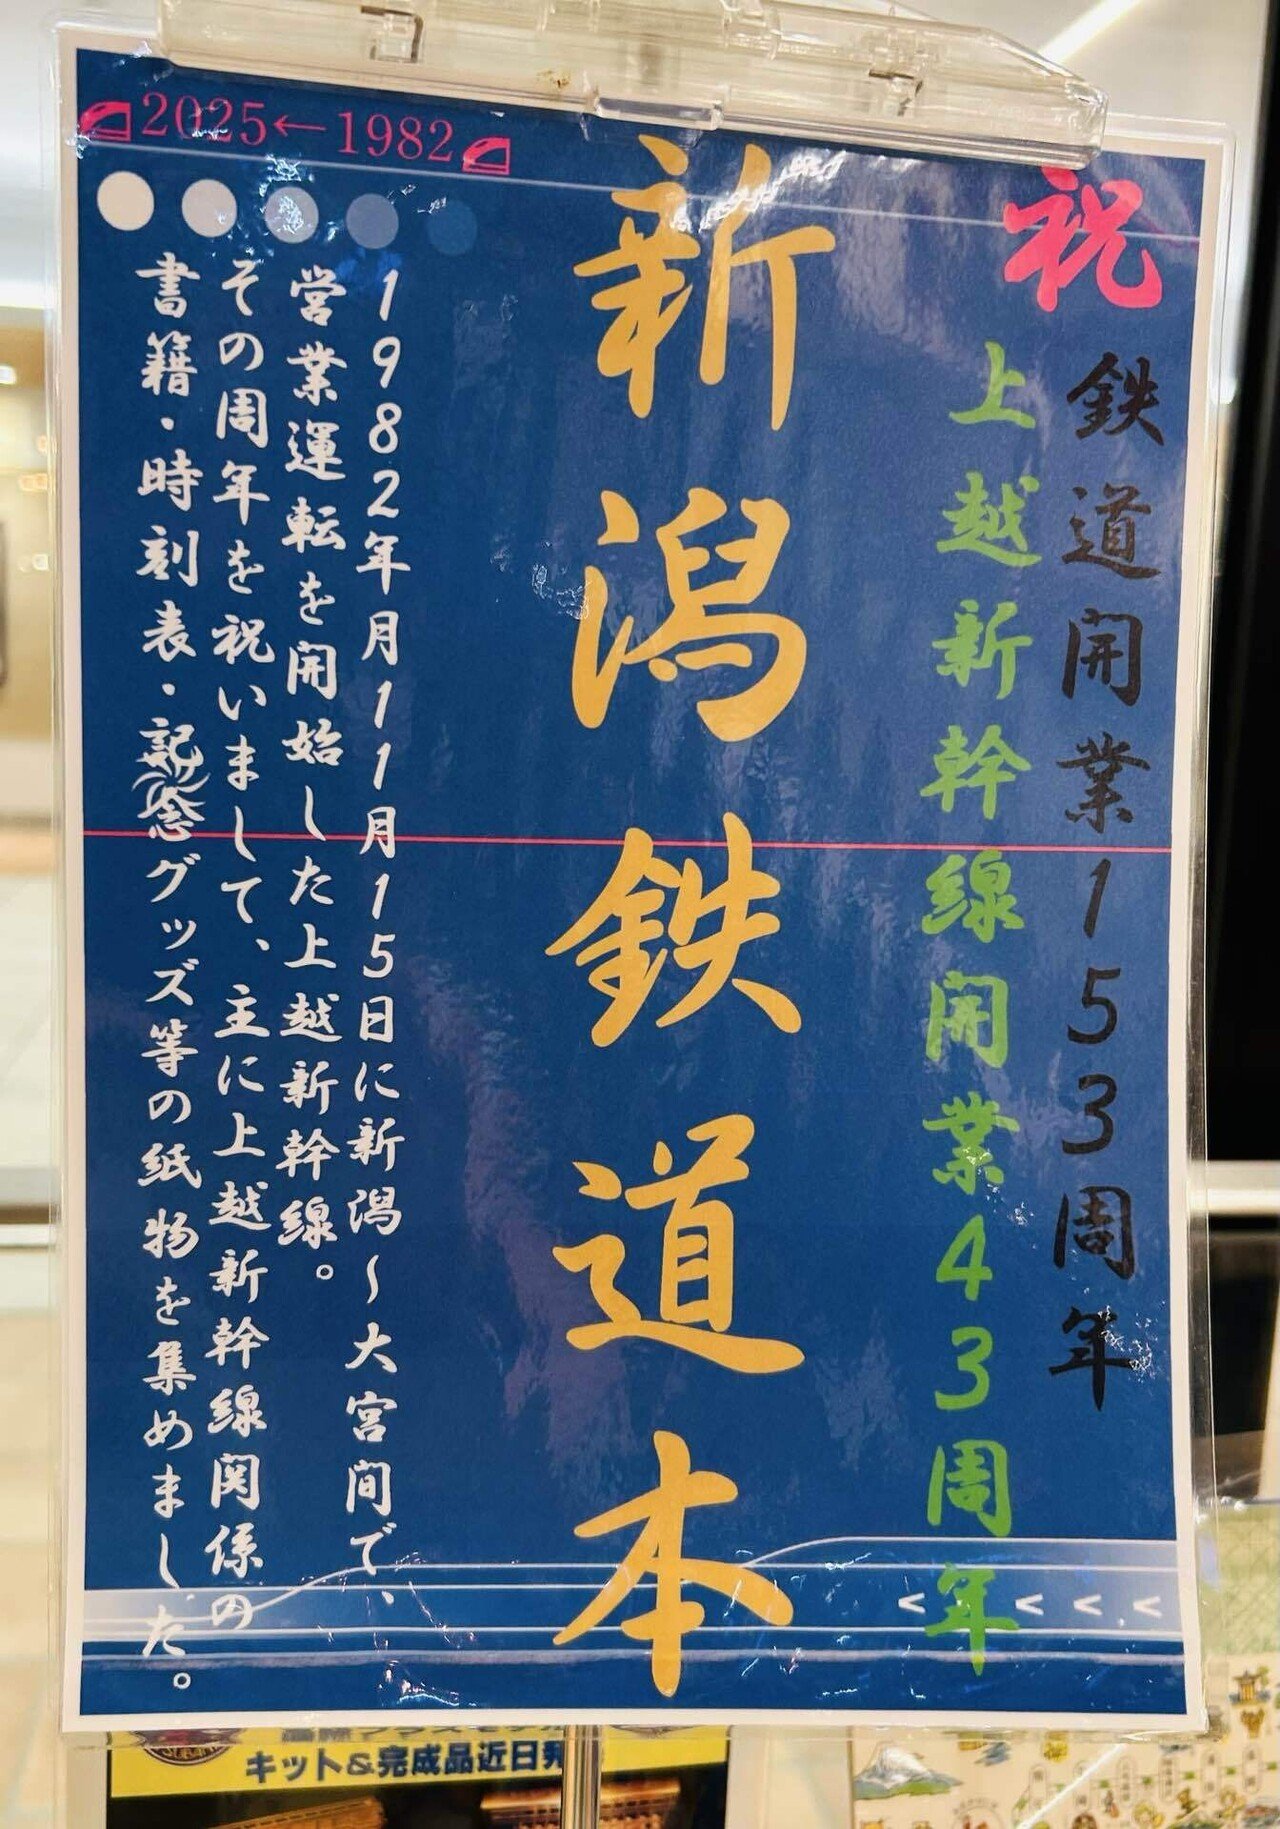 2025←1982
祝
鉄道開業153周年
上越新幹線開業43周年
新潟鉄道本
1982年月11月15日に新潟～大宮間で、
営業運転を開始した上越新幹線。
その周年を祝いまして、主に上越新幹線関係の
書籍・時刻表・記念グッズ等の紙物を集めました。
< < < <
キット&完成品近日発